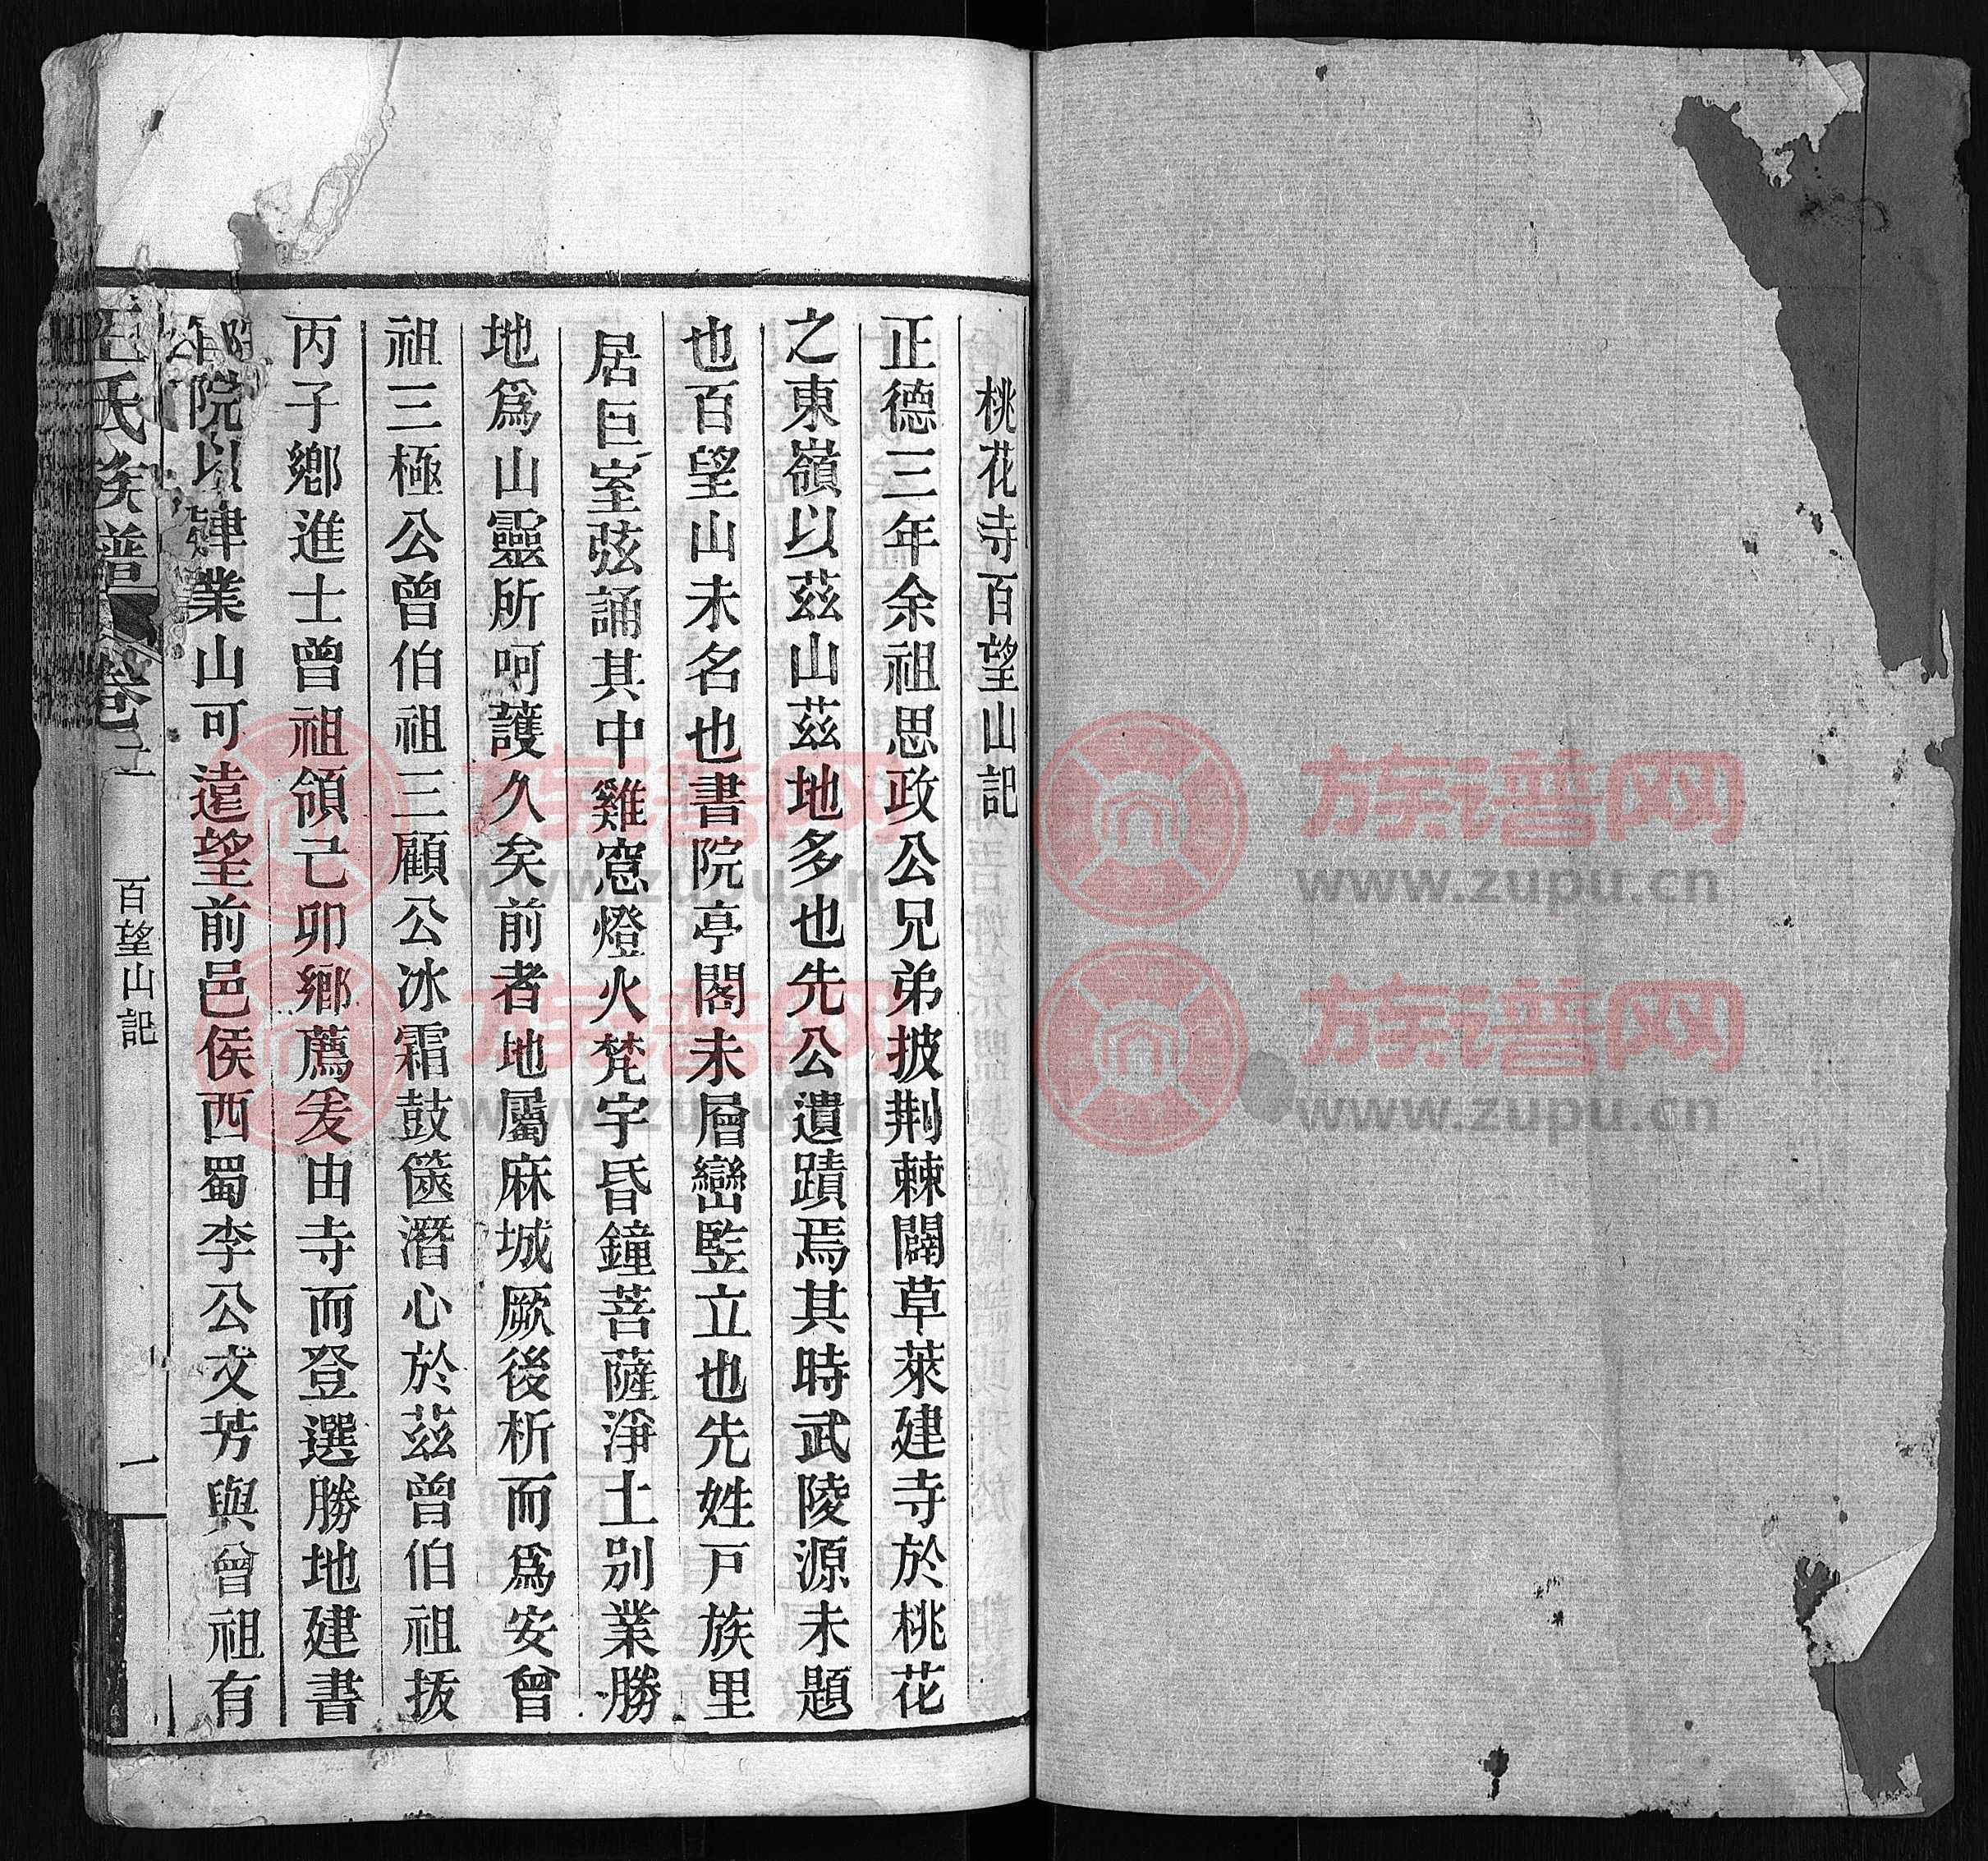 桃花寺百望山記
正德三年余祖思政公兄弟披荆棘闢草萊建寺於桃花
之東嶺以茲山茲地多也先公遺蹟焉其時武陵源未題
也百望山未名也書院亭閣未層巒監立也先姓戸族里
居巨室弦誦其中雞窓燈火梵宇昏鐘菩薩淨土别業勝
地爲山靈所呵護久矣前者地屬麻城厥後析而爲安曾
祖三極公曾伯祖三顧公冰霜鼓篋潛心於茲曾伯祖拔
丙子鄉進士曾祖領己卯鄉薦爰由寺而登選勝地建書
院以肄業山可遠望前邑侯西蜀李公文芳與曾祖有
王氏族譜
卷之二
百望山記
一
族谱网
www.zupu.cn
族谱网
www.zupu.cn
族谱网
www.zupu.cn
族谱网
www.zupu.cn